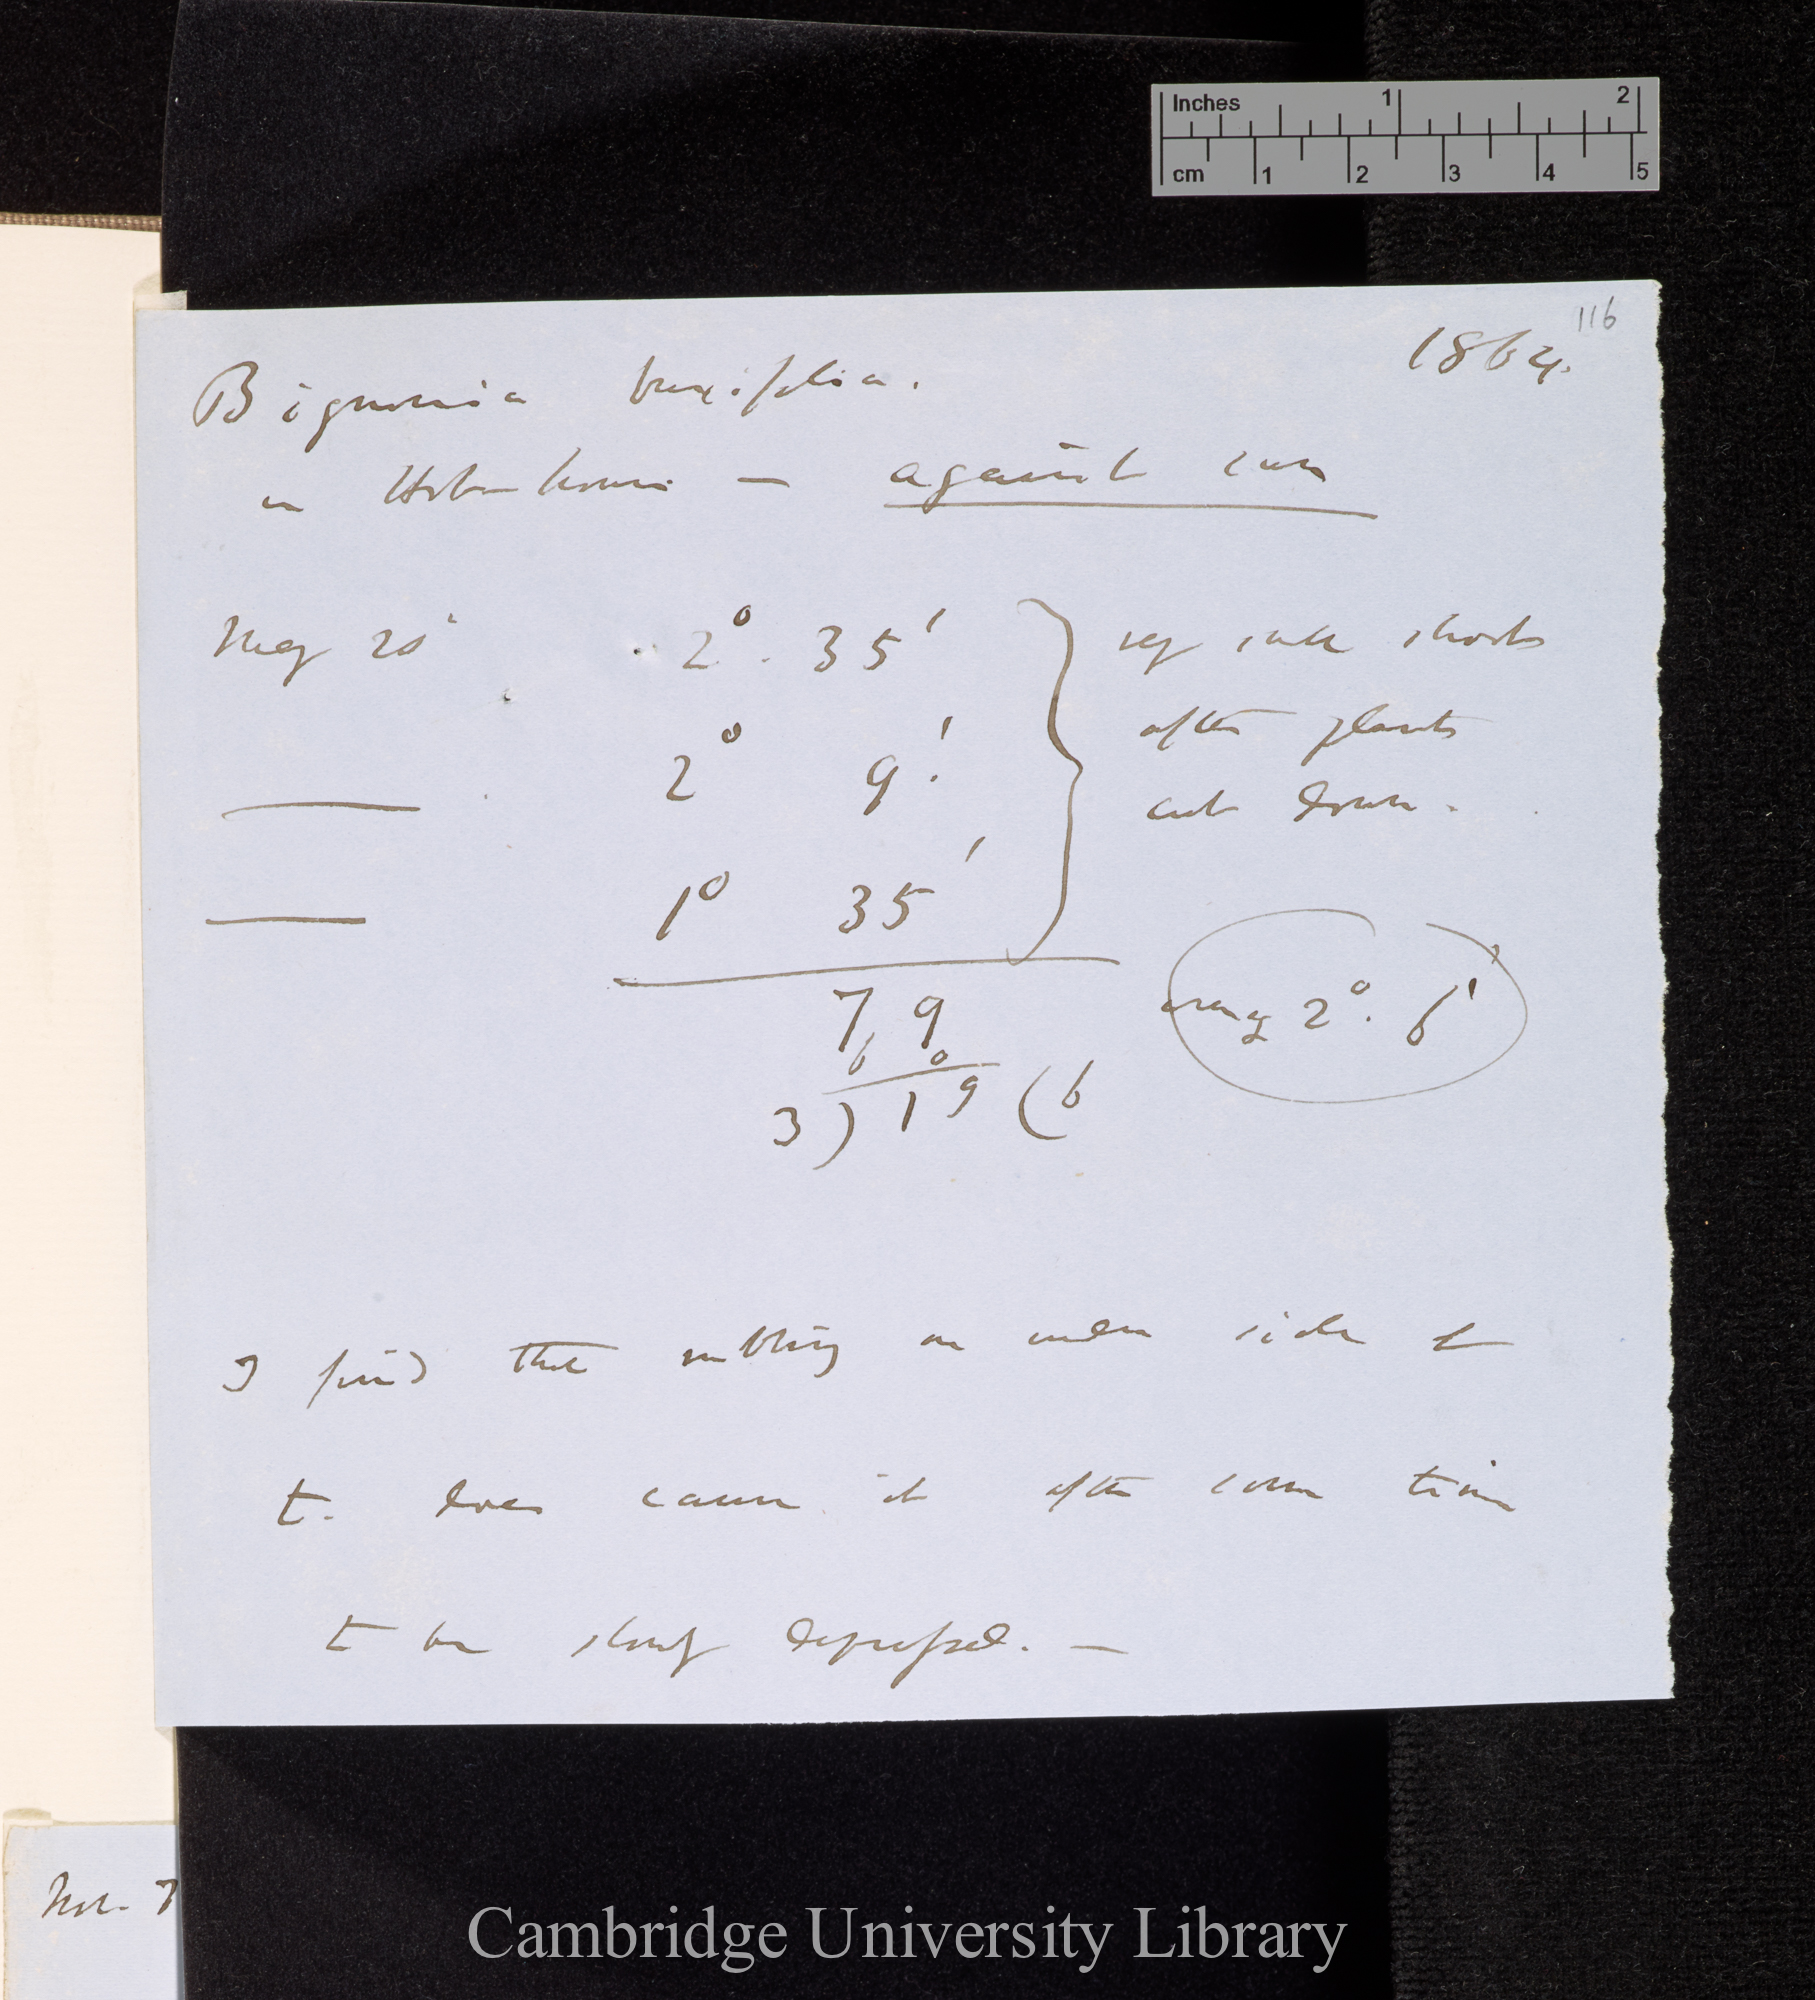 Inches 1 2
cm 1 2 3 4 5
116
1864.
Bignonia buxifolia.
in Hot-house — against sun
May 20' 2° 35' very late shoots
after plants
2° 9' cut down.
1° 35'
79
60
3) 19 (6
averag 2° 6'
I find that rubbing on under side of
t. does cause it after some time
to be slowly depressed. —
Nov. 7
Cambridge University Library